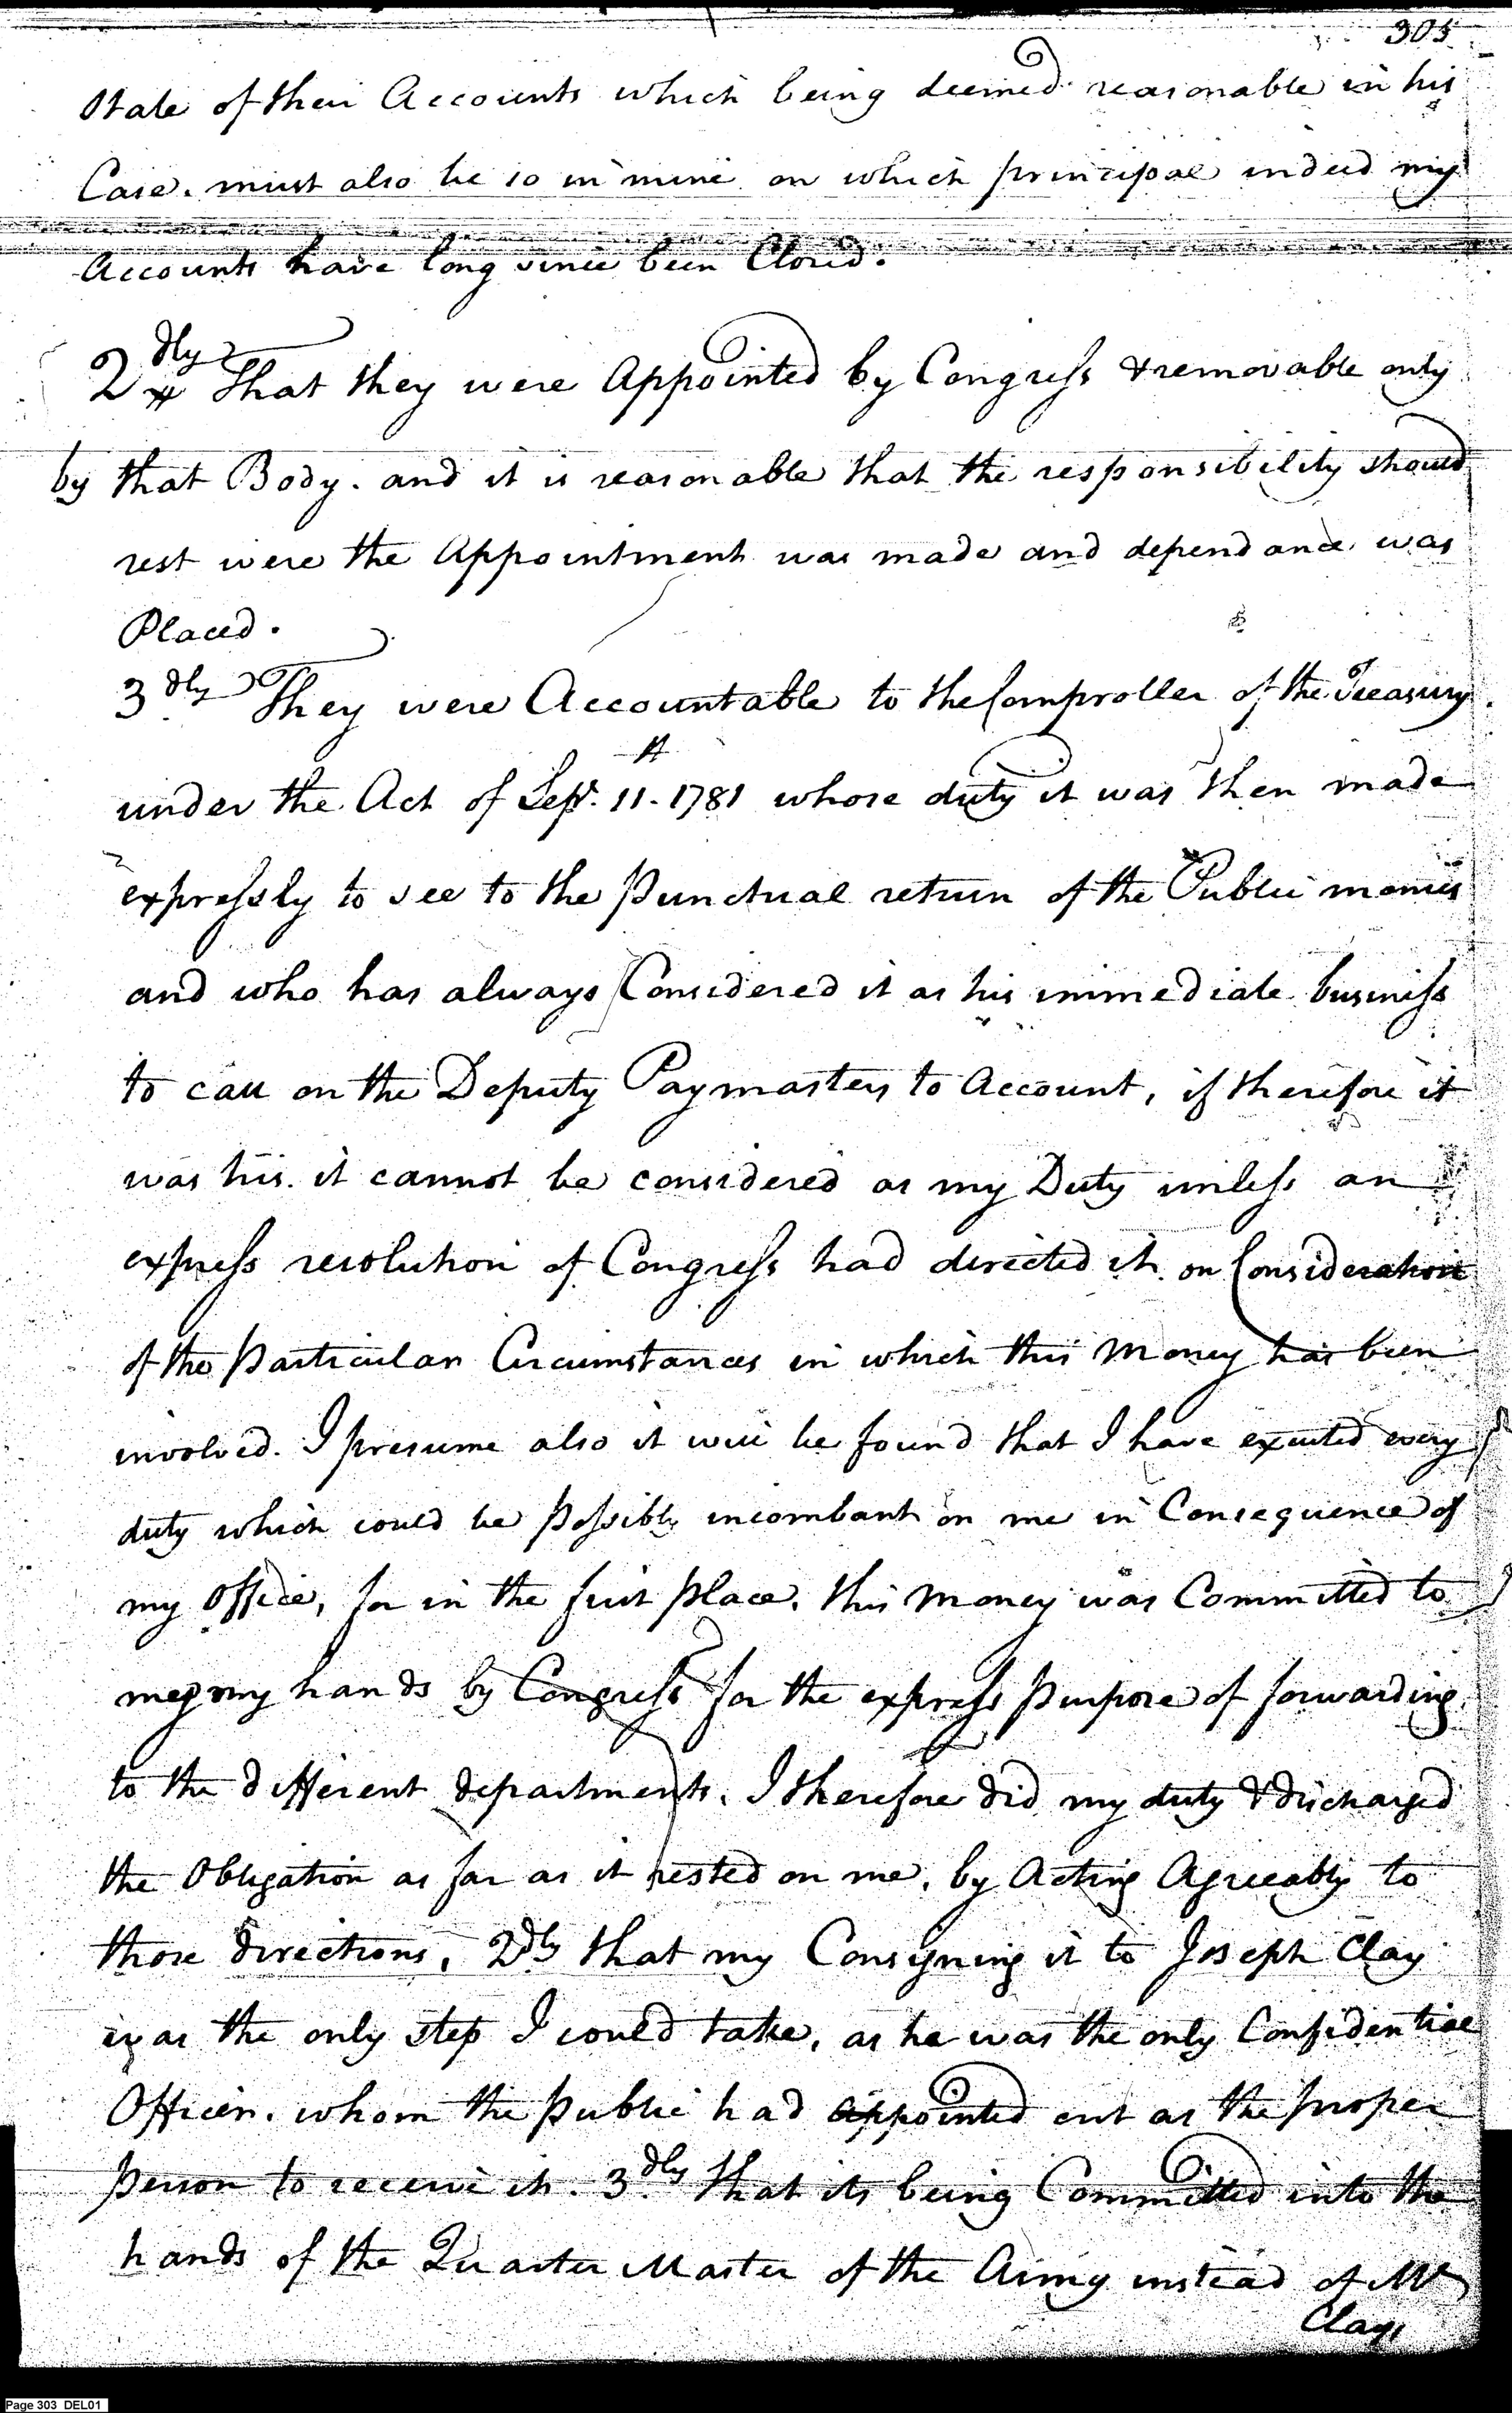 305
State of their Accounts which being deemed reasonable in his
Case. must also be so in mine on which principal indeed my
Accounts have long since been Closed.
2dly That they were Appointed by Congress & removable only
by that Body. and it is reasonable that the responsibility should
rest were the Appointment was made and dependance was
Placed.
3dly They were Accountable to the Comptroller of the Treasury.
under the Act of Sept. 11. 1781 whose duty it was then made
expressly to see to the Punctual return of the Public monies
and who has always Considered it as his immediate business
to call on the Deputy Paymasters to Account, if therefore it
was his. it cannot be considered as my Duty unless an
express resolution of Congress had directed it. on Consideration
of the Particular Circumstances in which this Money has been
involved. I presume also it will be found that I have exerted every
duty which could be Possibly incombant on me in Consequence of
my Office, for in the first Place. this Money was Committed to
my hands by Congress for the express Purpose of forwarding
to the different departments. I therefore did my duty & discharged
the Obligation as far as it rested on me, by Acting Agreeably to
those directions. 2dly that my Consigning it to Joseph Clay
was the only step I could take, as he was the only Confidential
Officer. whom the Public had appointed out as the proper
Person to receive it. 3dly that its being Committed into the
hands of the Quarter Master of the Army instead of Mr
Clays
Page 303 DEL01